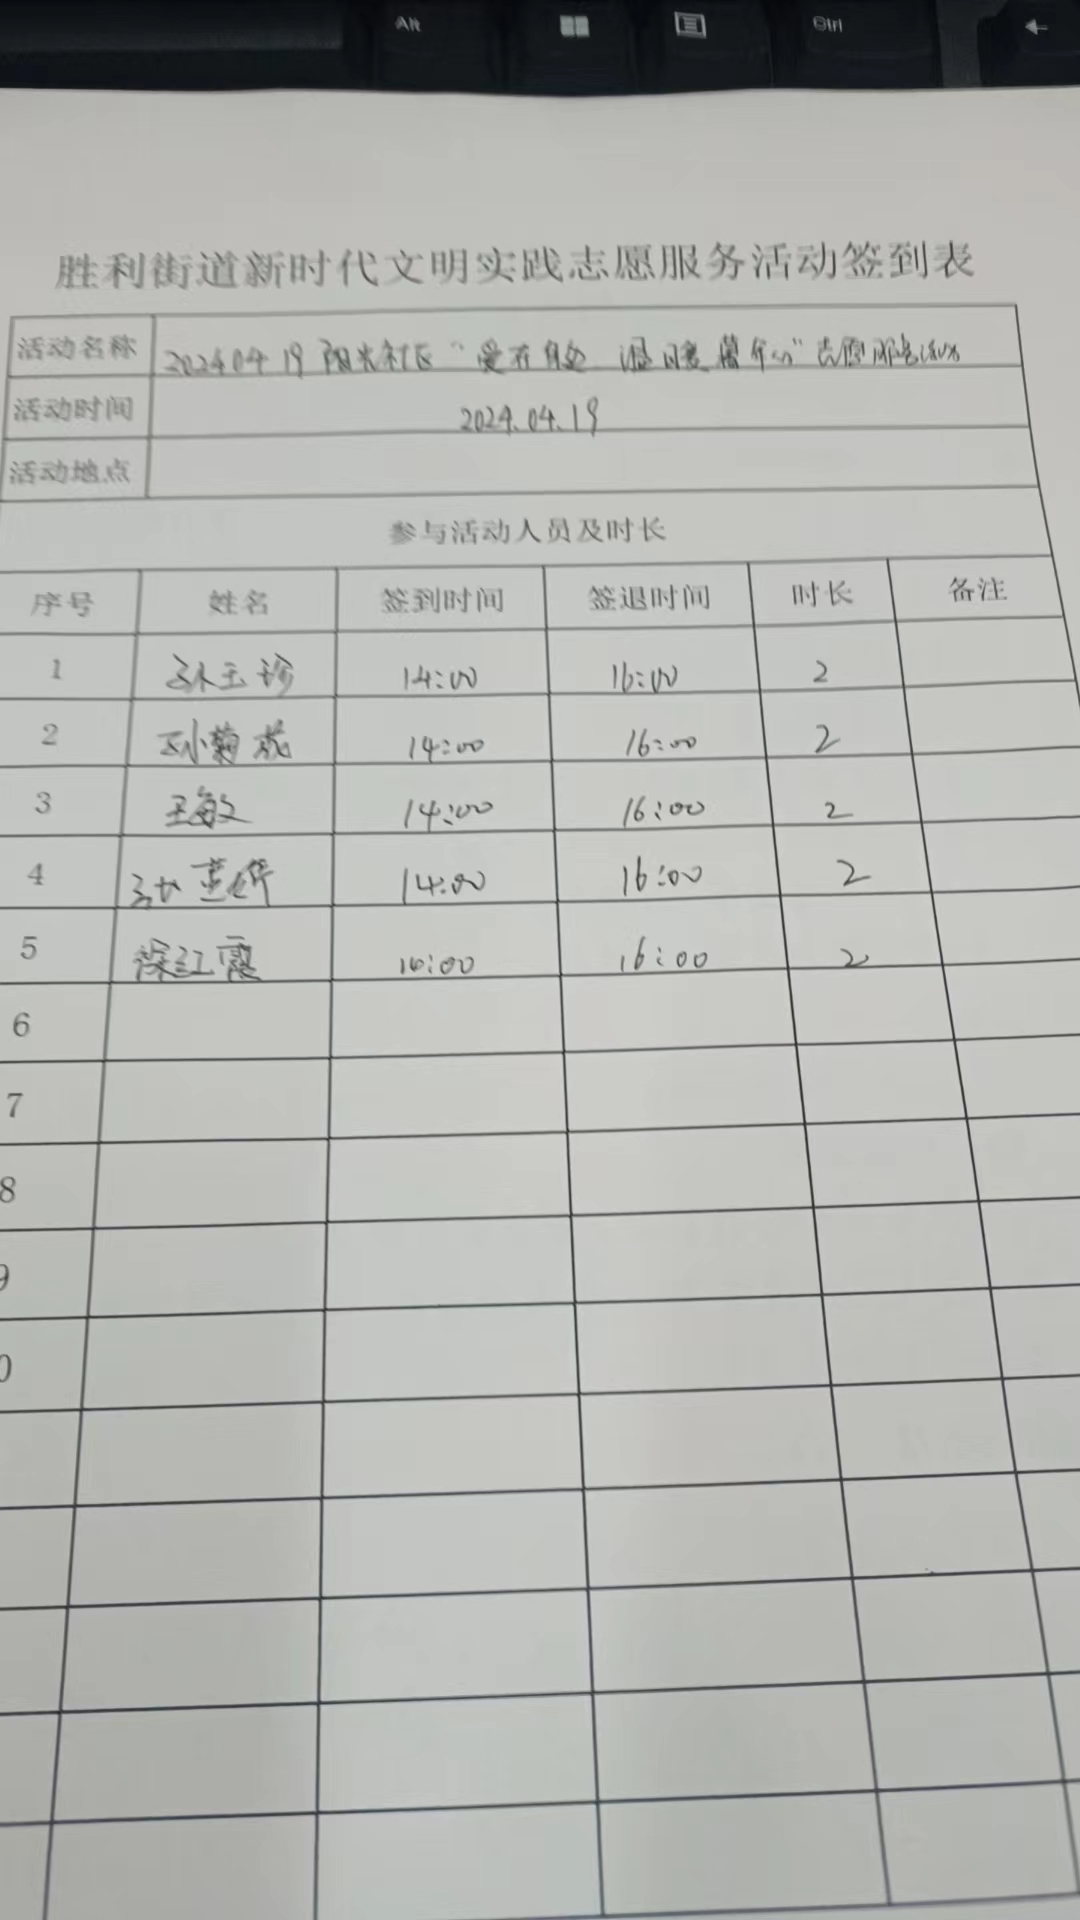 Alt Ctrl ←
胜利街道新时代文明实践志愿服务活动签到表
活动名称 20240419 阳光社区"爱在身边 温暖暮年心"志愿服务活动
活动时间 2024.04.19
活动地点
参与活动人员及时长
序号 姓名 签到时间 签退时间 时长 备注
1 孙玉珍 14:00 16:00 2
2 孙菊 14:00 16:00 2
3 王敏 14:00 16:00 2
4 14:00 16:00 2
5 徐红霞 14:00 16:00 2
6
7
8
9
0